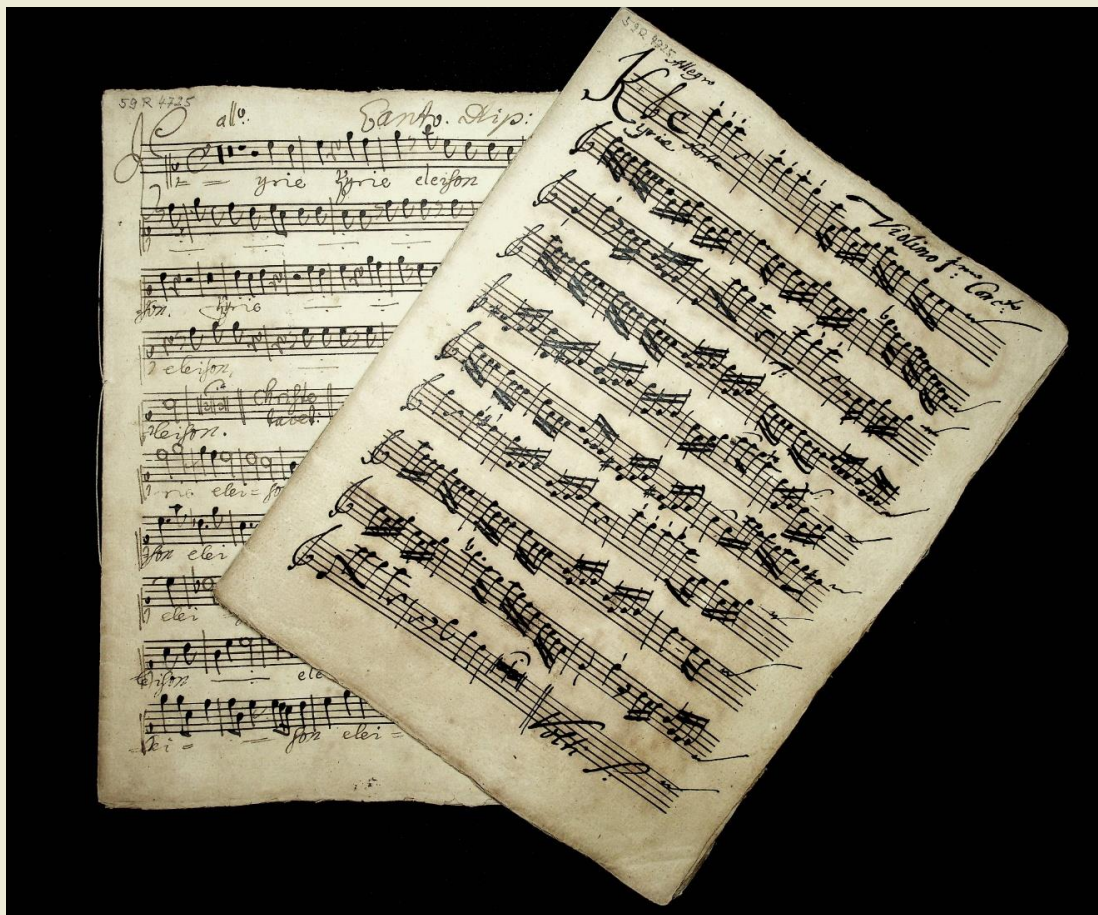 59 R 4725
allo. Canto. Rip:
yrie Kyrie eleison
son. Kyrie
eleison,
eleison. Christe tacet:
rie elei= so
son elei
elei
eison ele
elei = son elei =
59 R 4725
Allegro
Kyrie forte
Violino
Volti